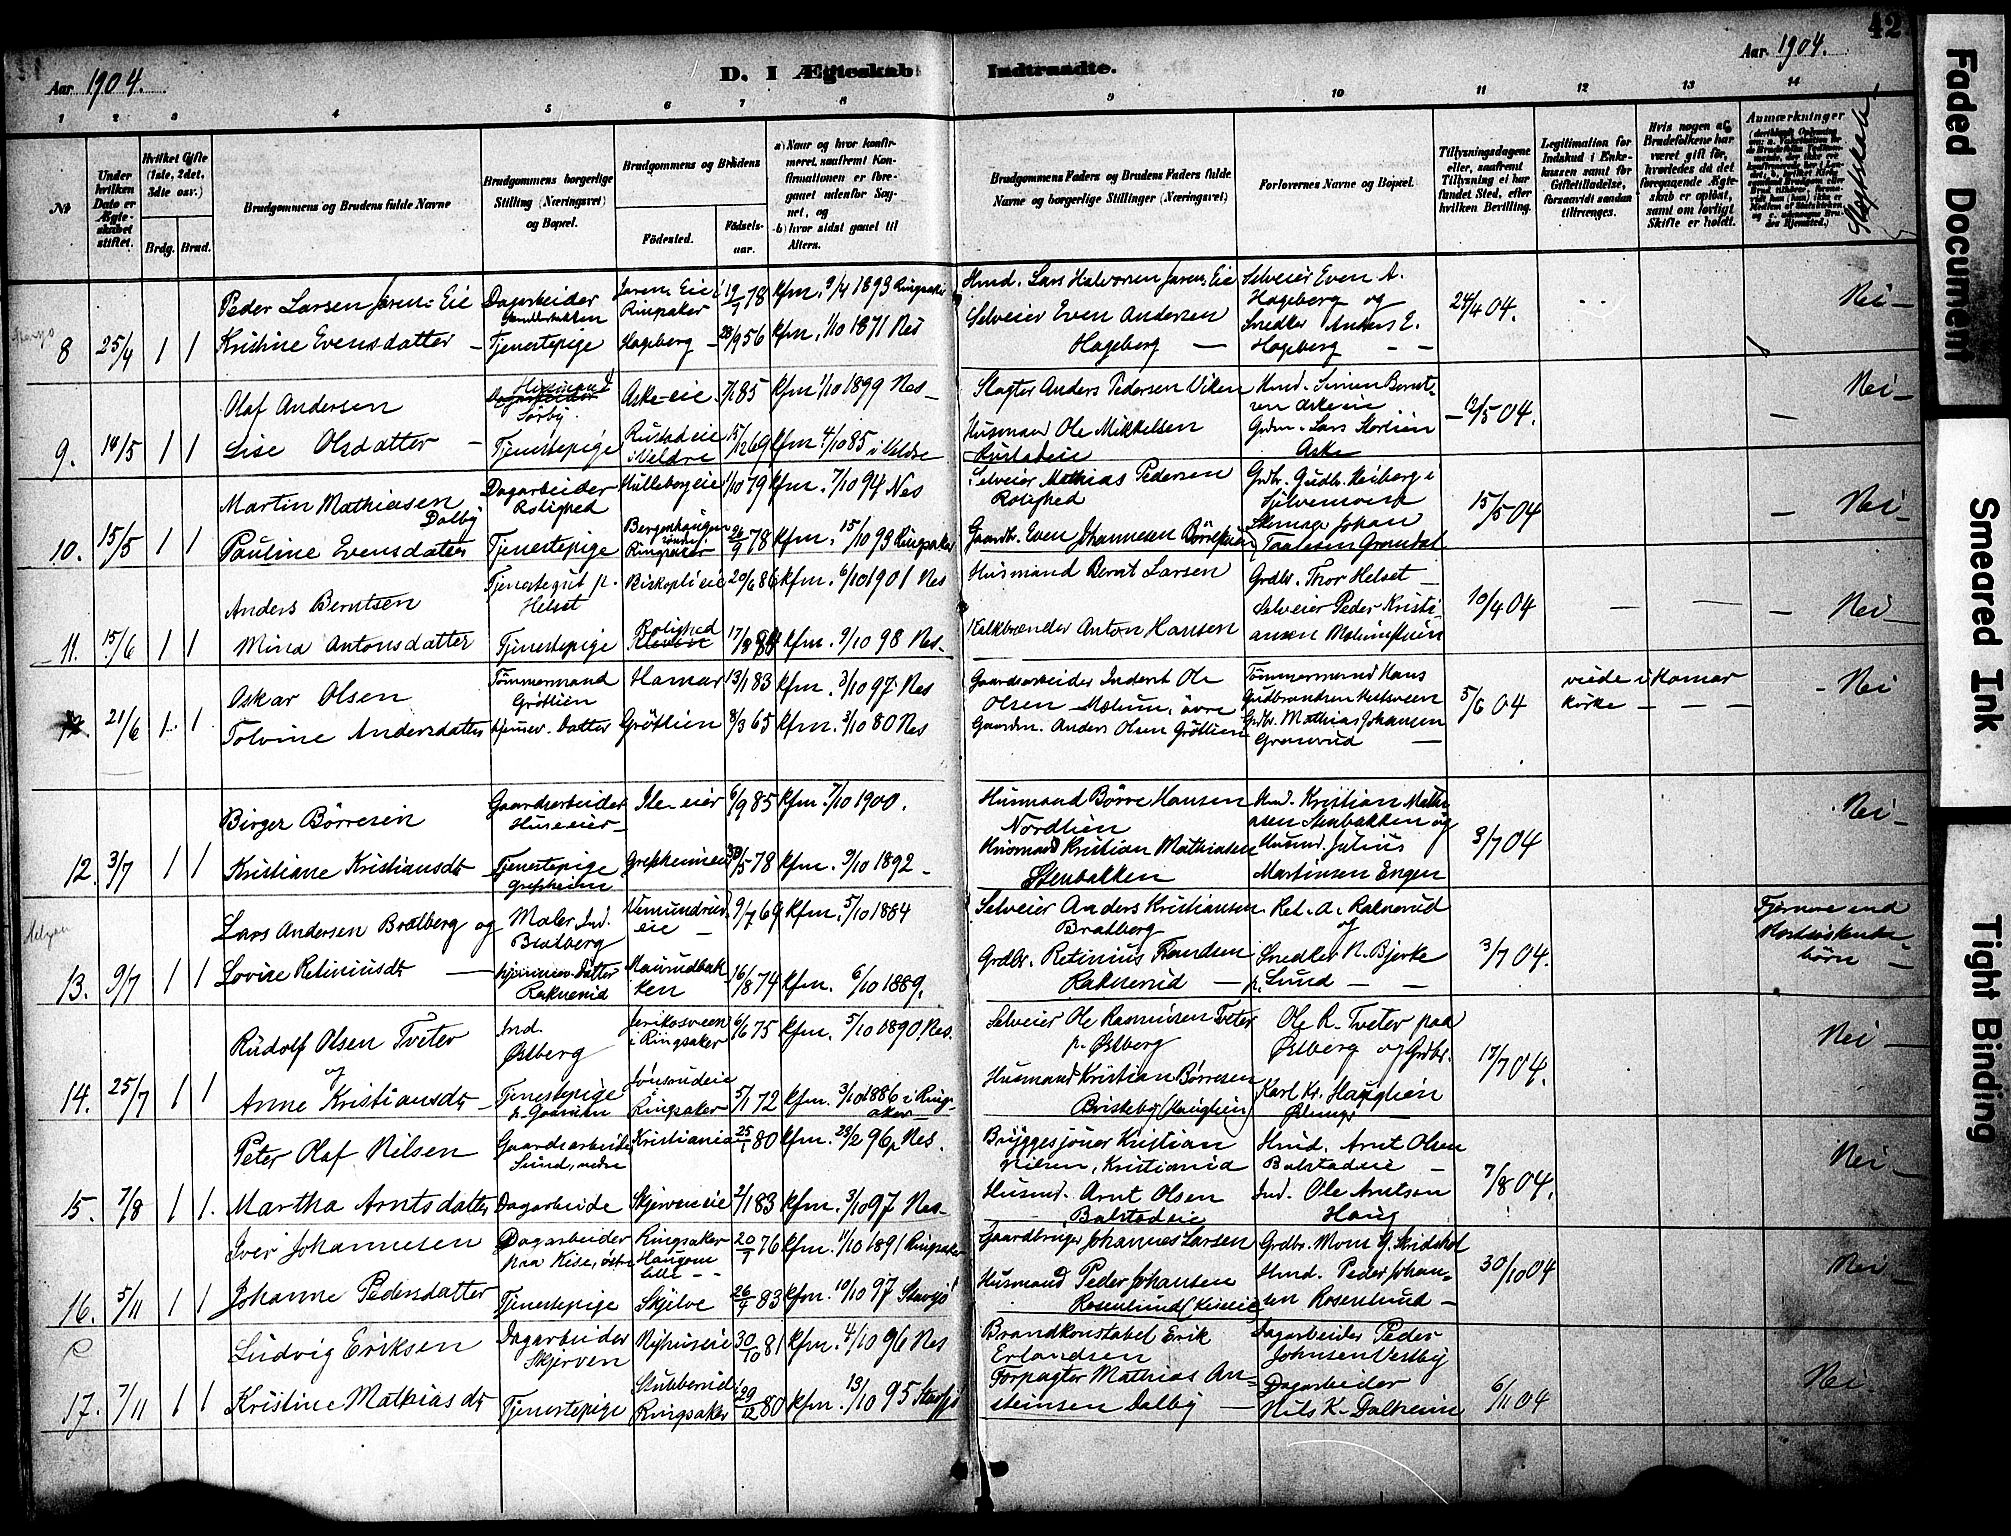 42
Aar 1904.
D. I Ægteskab Indtraadte.
Aar 1904.
1 2 3 4 5 6 7 8 9 10 11 12 13 14
No
Under hvilken Dato er Ægteskabet stiftet.
Hvilket Gifte (1ste, 2det, 3die osv.)
Brdg. Brud.
Brudgommens og Brudens fulde Navne
Brudgommens borgerlige Stilling (Næringsvei) og Bopæl.
Brudgommens og Brudens
Födested. Födsels-aar.
a) Naar og hvor konfirmeret, saafremt Konfirmationen er foregaaet udenfor Sognet, og
b) hvor sidst gaaet til Alters.
Brudgommens Faders og Brudens Faders fulde Navne og borgerlige Stillinger (Næringsvei)
Forlovernes Navne og Bopæl.
Tillysningsdagene eller, saafremt Tillysning ei har fundet Sted, efter hvilken Bevilling.
Legitimation for Indskud i Enkekassen samt for Giftetilladelse, forsaavidt saadan tiltrænges.
Hvis nogen af Brudefolkene har været gift för, hvorledes da det foregaaende Ægteskab er oplöst, samt om lovligt Skifte er holdt.
Anmærkninger
Peder Larsen Jarens Eie Dagarbeider Jarens Eie i Ringsaker 19/7 78 kfm. 9/4 1893 Ringsaker Hmd. Lars Halvorsen Jarens Eie Selveier Even A. Hageberg og Nei —
8 25/4 1 1 Kristine Evensdatter — Tjenestepige Hageberg — 28/9 56 kfm. 1/10 1871 Nes Selveier Even Andersen Hageberg — Snedker Anders E. Hageberg — — 24/4 04.
Olaf Andersen Husmand Sörby. Aske-eie 7/1 85 kfm 1/10 1899 Nes — Slagter Anders Pedersen Viken Hmd. Simen Berntsen Askeeie Nei —
9. 14/5 1 1 Lise Olsdatter — Tjenestepige Rustadeie i Veldre 15/12 69 kfm 4/10 85 i Veldre Husmand Ole Mikkelsen Rustadeie Grdm. Lars Stortien Aske — 12/5 04.
Martin Mathiasen Dalby Dagarbeider Rolighed Hulleborgeie 1/10 79 kfm. 7/10 94 Nes Selveier Mathias Pedersen Rolighed Grdbr. Gudbr. Heiberg i 15/5 04 — Nei —
10. 15/5 1 1 Pauline Evensdatter Tjenestepige Ringsaker 26/9 78 kfm. 15/10 93 Ringsaker Gaardbr. Even Johannesen Börrestuen Skomager Johan Paulsen Grøndal
Anders Berntsen Tjenestegut p. Helset Biskoplieie 20/6 86 kfm. 6/10 1901 Nes Husmand Bernt Larsen Grdbr. Thor Helset — 10/4 04 — — — Nei —
11. 15/6 1 1 Mina Antonsdatter Tjenestepige Rolighed 17/3 84 kfm. 9/10 98 Nes. Kalkbrænder Anton Hansen Selveier Peder Kristiansen Mælumstuen
Oskar Olsen Tömmermand Gröttien Hamar 13/1 83 kfm. 3/10 97 Nes Gaardsarbeider Inderst Ole Olsen Mælum, övre Tömmermand Hans Gudbrandsen Vestveen 5/6 04 viede i Hamar kirke — — — - Nei
21/6 1 1. Tolvine Andersdatter hjemmev. Datter Gröttien 8/3 65 kfm. 3/10 80 Nes Gaardm. Anders Olsen Gröttien Grdbr. Mathias Johansen Granerud —
Birger Börresen Gaardsarbeider Huseeier — Ile-eier 6/9 85 kfm. 7/10 1900. Husmand Börre Hansen Nordlien Hmd. Kristian Mathiasen Stenbakken og Nei —
12. 3/7 1 1 Kristiane Kristiansdtr Tjenestepige Grefsheim Grefsheimeie 30/5 78 kfm. 9/10 1892 — Husmand Kristian Mathiasen Stenbakken Husmd. Julius Martinsen Engen 3/7 04
Lars Andersen Bratberg og Maler Ind. Bratberg Nemundrudeie — 9/7 69 kfm. 5/10 1884 Selveier Anders Kristiansen Bratberg Ret. A. Raknerud og Fjernere end Næstsöskendebörn —
13. 9/7 1 1 Lovise Retiniusdtr — hjemmev. Datter Raknerud Maurudbakken 16/8 74 kfm. 6/10 1889. Grdbr. Retinius Frandsen Raknerud — Snedker N. Bjerke p. Lund — — 3/7 04.
Rudolf Olsen Tveter og Ind. Østberg Jerikosveen i Ringsaker 6/6 75 kfm. 5/10 1890. Nes. Selveier Ole Rasmusen Tveter p. Østberg Ole R. Tveter paa Østberg og Grdbr. 17/7 04. Nei —
14. 25/7 1 1 Anne Kristiansdtr — Tjenestepige Jönsrudeie Ringsaker 5/1 72 kfm. 3/10 1886 i Ringsaker Husmand Kristian Börresen Briskeby (Hauglien) Karl Kr. Hauglien
Peter Olaf Nilsen Gaardsarbeider Lund, nedre Kristiania 25/1 80 kfm. 23/2 96, Nes. Bryggesjouer Kristian Nilsen, Kristiania Hmd. Arnt Olsen Balstadeie — 7/8 04. Nei —
15. 7/8 1 1. Martha Arntsdatter Dagarbeide Skjerveneie 2/1 83 kfm. 3/10 97 Nes — Husmd. Arnt Olsen Balstadeie Ind. Ole Arntsen Haug
Iver Johannesen Dagarbeider paa Kise, østre Ringsaker Haugom lille — — 20/7 76 kfm. 11/10 1891 Ringsaker Gaardbruger Johannes Larsen Grdbr. Mons G. Skridshol 30/10 04 Nei —
16. 5/11 1 1 Johanne Pedersdatter Tjenestepige Skjelve 26/4 83 kfm. 10/10 97 Stavsjö Husmand Peder Johansen Rosenlund (Kiseeie) Hmd. Peder Johansen Rosenlund —
Ludvig Eriksen Dagarbeider Skjerven Nyhuseie 30/10 81 kfm. 4/10 96 Nes Brandkonstabel Erik Erlandsen Dagarbeider Peder Johnsen Vestby Nei —
17. 7/11 1 1 Kristine Mathiasdtr Tjenestepige Stubberud i Ringsaker 29/12 80 kfm. 13/10 95 Stavsjö Forpagter Mathias Ansteinsen Dalby — Dagarbeider Nils K. Dalheim 6/11 04
Faded Document
Smeared Ink
Tight Binding